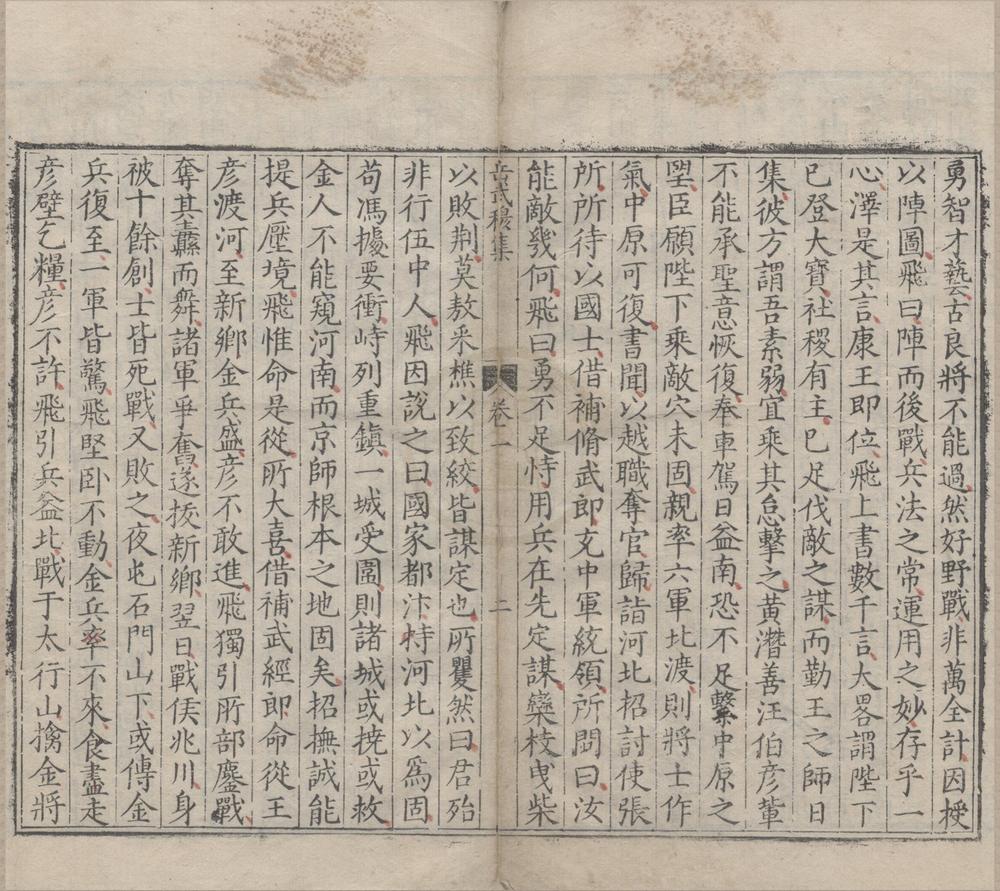 勇智才藝古良將不能過然好野戰非萬全計因授
以陣圖飛曰陣而後戰兵法之常運用之妙存乎一
心澤是其言康王即位飛上書數千言大畧謂陛下
已登大寶社稷有主已足伐敵之謀而勤王之師日
集彼方謂吾素弱宜乘其怠擊之黄潛善汪伯彦輩
不能承聖意恢復奉車駕日益南恐不足繫中原之
望臣願陛下乘敵穴未固親率六軍北渡則將士作
氣中原可復書聞以越職奪官歸詣河北招討使張
所所待以國士借補脩武郎充中軍統領所問曰汝
能敵幾何飛曰勇不足恃用兵在先定謀欒枝曳柴
岳武穆集 卷一 二
以敗荆莫敖采樵以致絞皆謀定也所矍然曰君殆
非行伍中人飛因說之曰國家都汴恃河北以爲固
苟馮據要衝峙列重鎮一城受圍則諸城或撓或救
金人不能窺河南而京師根本之地固矣招撫誠能
提兵壓境飛惟命是從所大喜借補武經郎命從王
彦渡河至新鄉金兵盛彦不敢進飛獨引所部鏖戰
奪其纛而舞諸軍爭奮遂拔新鄉翌日戰侯兆川身
被十餘創士皆死戰又敗之夜屯石門山下或傳金
兵復至一軍皆驚飛堅卧不動金兵率不來食盡走
彦壁乞糧彦不許飛引兵益北戰于太行山擒金將